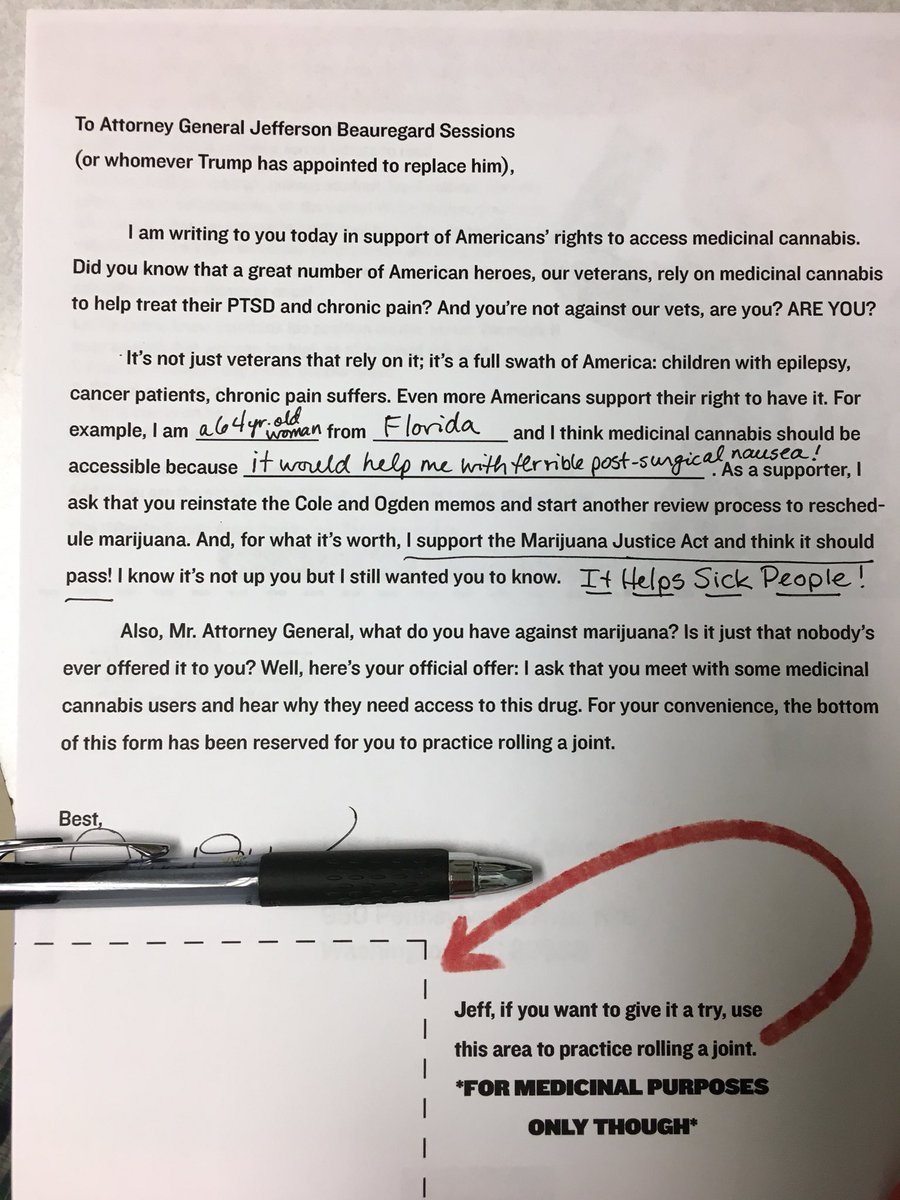 To Attorney General Jefferson Beauregard Sessions
(or whomever Trump has appointed to replace him),
I am writing to you today in support of Americans' rights to access medicinal cannabis.
Did you know that a great number of American heroes, our veterans, rely on medicinal cannabis
to help treat their PTSD and chronic pain? And you're not against our vets, are you? ARE YOU?
It's not just veterans that rely on it; it's a full swath of America: children with epilepsy,
cancer patients, chronic pain suffers. Even more Americans support their right to have it. For
example, I am a 64 yr. old woman from Florida and I think medicinal cannabis should be
accessible because it would help me with terrible post-surgical nausea! . As a supporter, I
ask that you reinstate the Cole and Ogden memos and start another review process to resched-
ule marijuana. And, for what it's worth, I support the Marijuana Justice Act and think it should
pass! I know it's not up you but I still wanted you to know. It Helps Sick People!
Also, Mr. Attorney General, what do you have against marijuana? Is it just that nobody's
ever offered it to you? Well, here's your official offer: I ask that you meet with some medicinal
cannabis users and hear why they need access to this drug. For your convenience, the bottom
of this form has been reserved for you to practice rolling a joint.
Best,
Jeff, if you want to give it a try, use
this area to practice rolling a joint.
*FOR MEDICINAL PURPOSES
ONLY THOUGH*